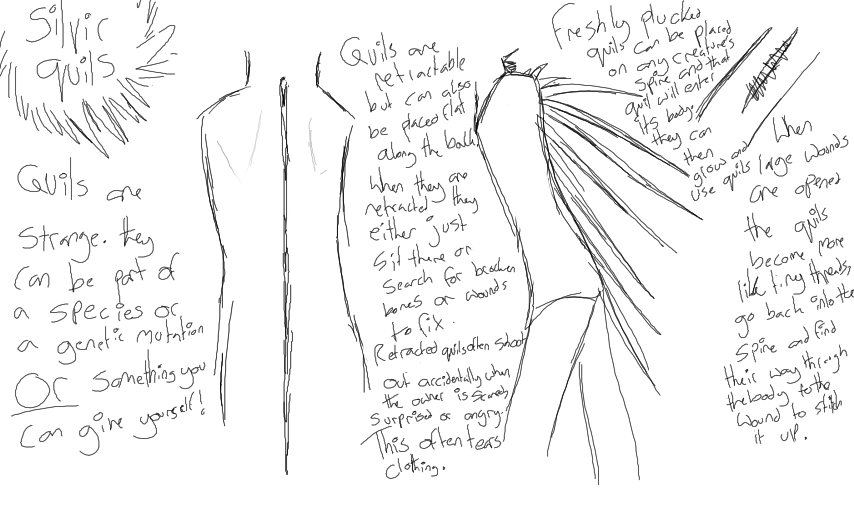 Silvic
quils
Quils are
strange. they
can be part of
a species or
a genetic mutation
OR something you
can give yourself!
Quils are
retractable
but can also
be placed flat
along the back.
When they are
retracted they
either just
sit there or
search for brocken
bones or wounds
to fix.
Retracted quils often shoot
out accidentally when
the owner is scared,
surprised or angry.
This often tears
clothing.
Freshly plucked
quils can be placed
on any creature's
spine and that
quil will enter
its body.
they can
then
grow and
use quils
When
large wounds
are opened
the quils
become more
like tiny threads,
go back into the
spine and find
their way through
the body, to the
wound to stitch
it up.